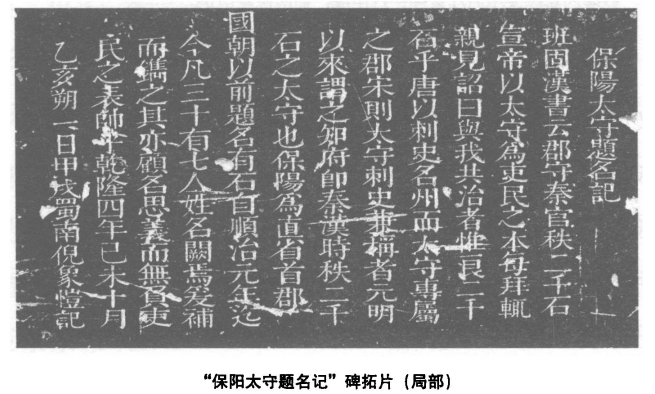 保陽太守題名記
班固漢書云郡守秦官秩二千石
宣帝以太守為吏民之本每拜輒
親見詔曰與我共治者惟良二千
石乎唐以刺史名州而太守專屬
之郡宋則太守刺史兼稱者元明
以來謂之知府卽秦漢時秩二千
石之太守也保陽為直省首郡
國朝以前題名有石自順治元年迄
今凡三十有七人姓名闕焉爰補
而鐫之其亦顧名思義而無負吏
民之表帥乎乾隆四年己未十月
乙亥朔一日甲戌蜀南倪象愷記
“保阳太守题名记”碑拓片（局部）